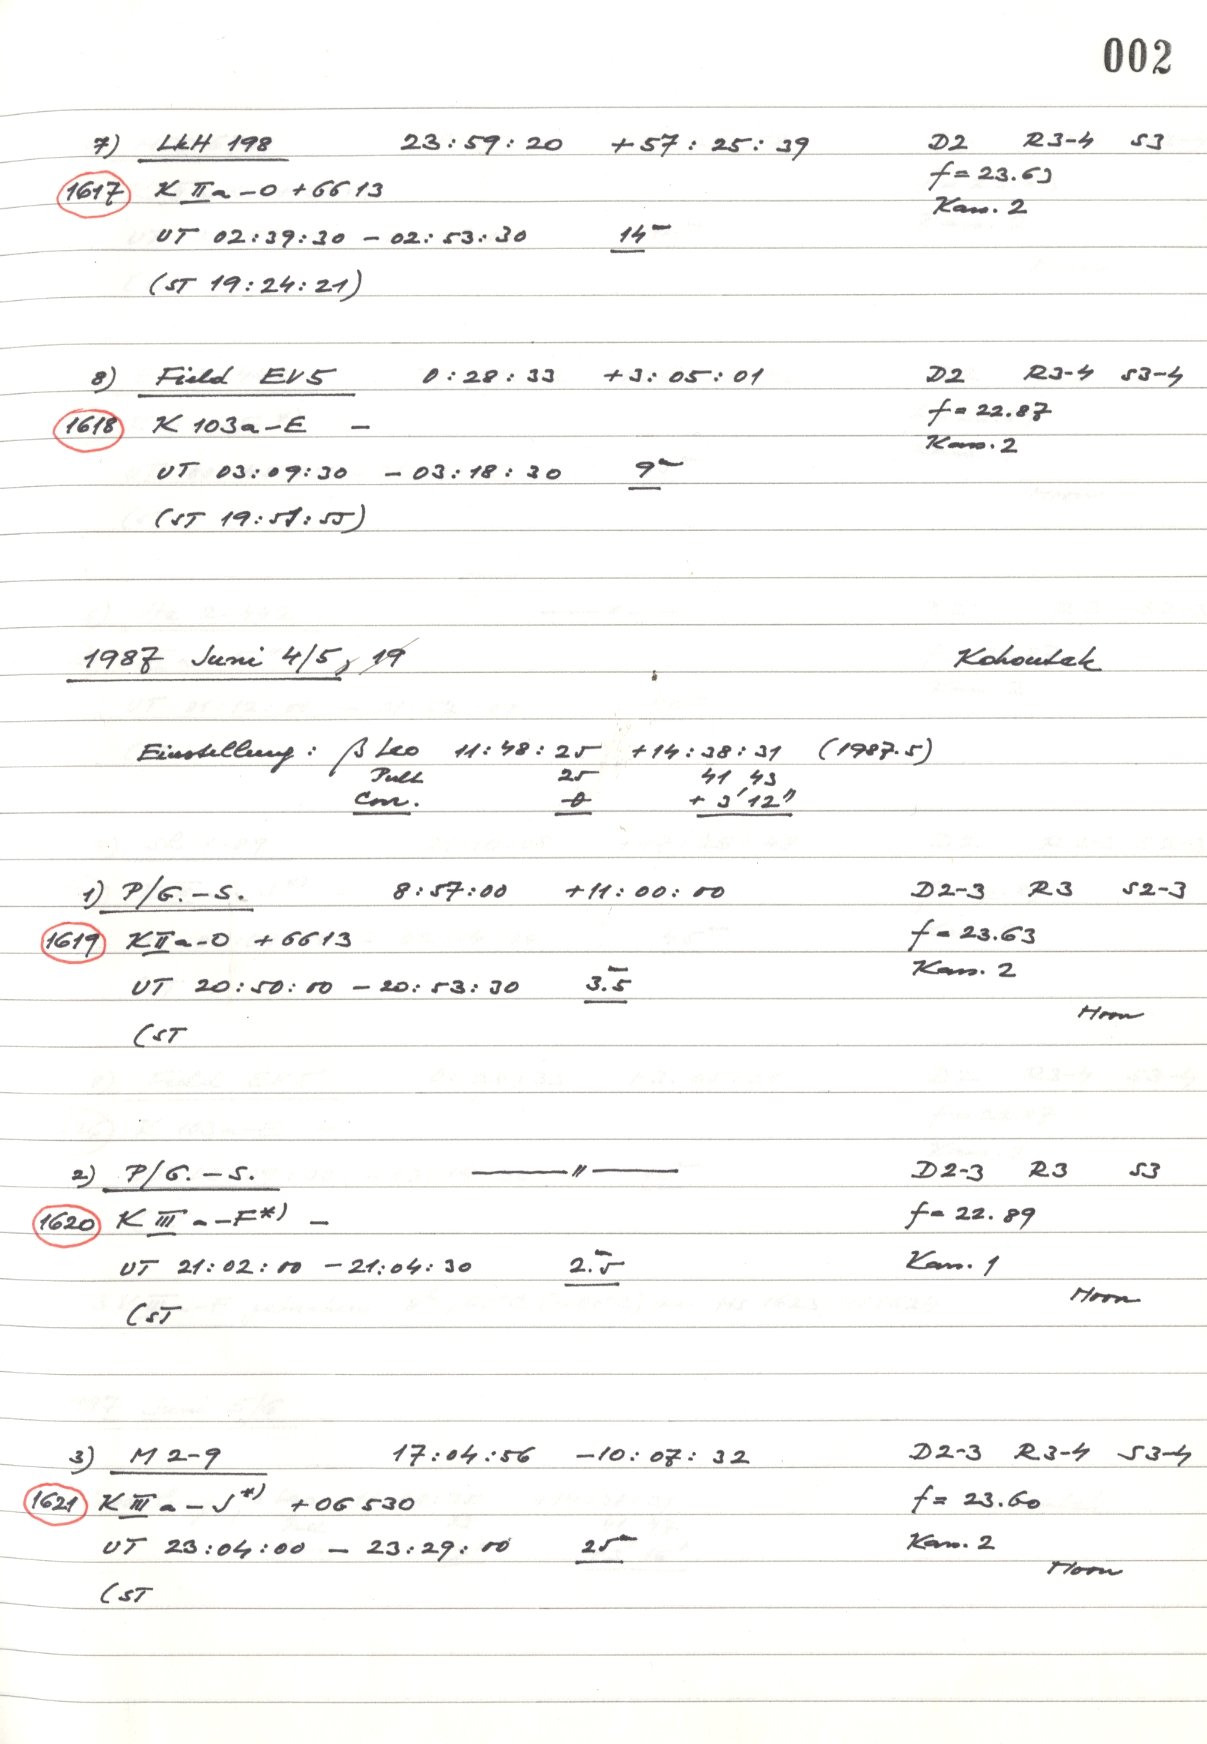 002
7) LkH 198 23:59:20 +57:25:39 D2 R3-4 S3
1617 K IIa-O +GG13 f=23.63
Kass. 2
UT 02:39:30 - 02:53:30 14m
(ST 19:24:21)
8) Field EV5 0:28:33 +3:05:01 D2 R3-4 S3-4
1618 K 103a-E - f=22.87
Kass. 2
UT 03:09:30 - 03:18:30 9m
(ST 19:51:55)
1987 Juni 4/5, 19 Kohoutek
Einstellung: β Leo 11:48:25 +14:38:31 (1987.5)
Pult 25 41 43
Corr. 0 +3'12"
1) P/G.-S. 8:57:00 +11:00:00 D2-3 R3 S2-3
1619 K IIa-O +GG13 f=23.63
Kass. 2
UT 20:50:00 - 20:53:30 3.m5
Moon
(ST
2) P/G.-S. —"— D2-3 R3 S3
1620 K IIIa-F*) - f=22.89
UT 21:02:00 - 21:04:30 2.m5 Kass. 1
Moon
(ST
3) M 2-9 17:04:56 -10:07:32 D2-3 R3-4 S3-4
1621 K IIIa-J*) +OG 530 f=23.60
UT 23:04:00 - 23:29:00 25m Kass. 2
Moon
(ST